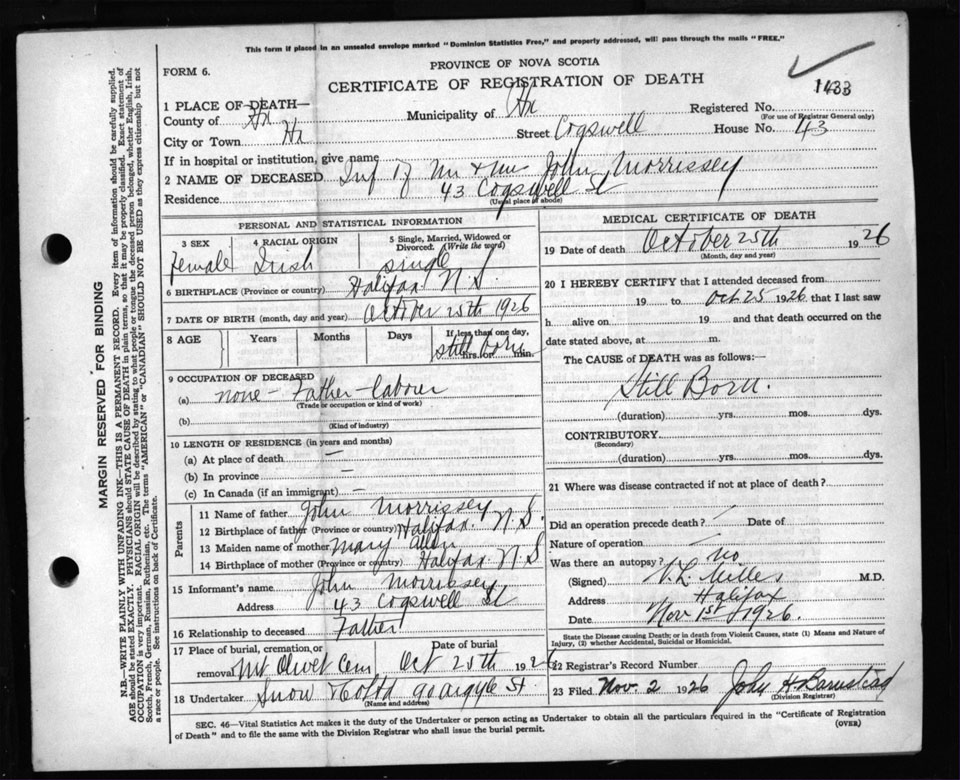 This form if placed in an unsealed envelope marked "Dominion Statistics Free," and properly addressed, will pass through the mails "FREE."
PROVINCE OF NOVA SCOTIA
FORM 6.
CERTIFICATE OF REGISTRATION OF DEATH
1433
1 PLACE OF DEATH—
County of Hx Municipality of Hx Registered No.
(For use of Registrar General only)
City or Town Hx Street Cogswell House No. 43
If in hospital or institution, give name
2 NAME OF DECEASED Inf of Mr & Mrs John Morrissey
Residence 43 Cogswell St
(Usual place of abode)
PERSONAL AND STATISTICAL INFORMATION
3 SEX 4 RACIAL ORIGIN 5 Single, Married, Widowed or Divorced. (Write the word)
Female Irish single
6 BIRTHPLACE (Province or country) Halifax N.S.
7 DATE OF BIRTH (month, day and year) October 25th 1926
8 AGE Years Months Days If less than one day, hrs. or min.
still born
9 OCCUPATION OF DECEASED
(a) none - Father - laborer
(Trade or occupation or kind of work)
(b)
(Kind of industry)
10 LENGTH OF RESIDENCE (in years and months)
(a) At place of death —
(b) In province —
(c) In Canada (if an immigrant) —
Parents
11 Name of father John Morrissey
12 Birthplace of father (Province or country) Halifax. N.S.
13 Maiden name of mother Mary Allen
14 Birthplace of mother (Province or country) Halifax N S
15 Informant's name John Morrissey
Address 43 Cogswell St
16 Relationship to deceased Father
17 Place of burial, cremation, or removal Date of burial
Mt Olivet Cem Oct 25th 1926
18 Undertaker Snow & Co Ltd 90 Argyle St.
(Name and address)
MEDICAL CERTIFICATE OF DEATH
19 Date of death October 25th 1926
(Month, day and year)
20 I HEREBY CERTIFY that I attended deceased from
19 to Oct 25 1926 that I last saw
h alive on 19 and that death occurred on the
date stated above, at m.
The CAUSE OF DEATH was as follows:—
Still Born.
(duration) yrs. mos. dys.
CONTRIBUTORY
(Secondary)
(duration) yrs. mos. dys.
21 Where was disease contracted if not at place of death?
Did an operation precede death? Date of
Nature of operation
Was there an autopsy? no
(Signed) M.D.
Address Halifax
Date Nov 1st 1926.
State the Disease causing Death; or in death from Violent Causes, state (1) Means and Nature of
Injury, (2) whether Accidental, Suicidal or Homicidal.
22 Registrar's Record Number
23 Filed Nov. 2 1926 John H. Barnstead
(Division Registrar)
SEC. 46—Vital Statistics Act makes it the duty of the Undertaker or person acting as Undertaker to obtain all the particulars required in the "Certificate of Registration
of Death" and to file the same with the Division Registrar who shall issue the burial permit.
(OVER)
MARGIN RESERVED FOR BINDING
N.B.—WRITE PLAINLY WITH UNFADING INK—THIS IS A PERMANENT RECORD. Every item of information should be carefully supplied.
AGE should be stated EXACTLY. PHYSICIANS should STATE CAUSE OF DEATH in plain terms, so that it may be properly classified. Exact statement of
OCCUPATION is very important. RACIAL ORIGIN will be described by stating to what people or tongue the deceased person belonged, whether English, Irish,
Scotch, French, German, Russian, Ruthenian, etc. The terms "AMERICAN" or "CANADIAN" SHOULD NOT BE USED as they express citizenship but not
a race or people. See instructions on back of Certificate.